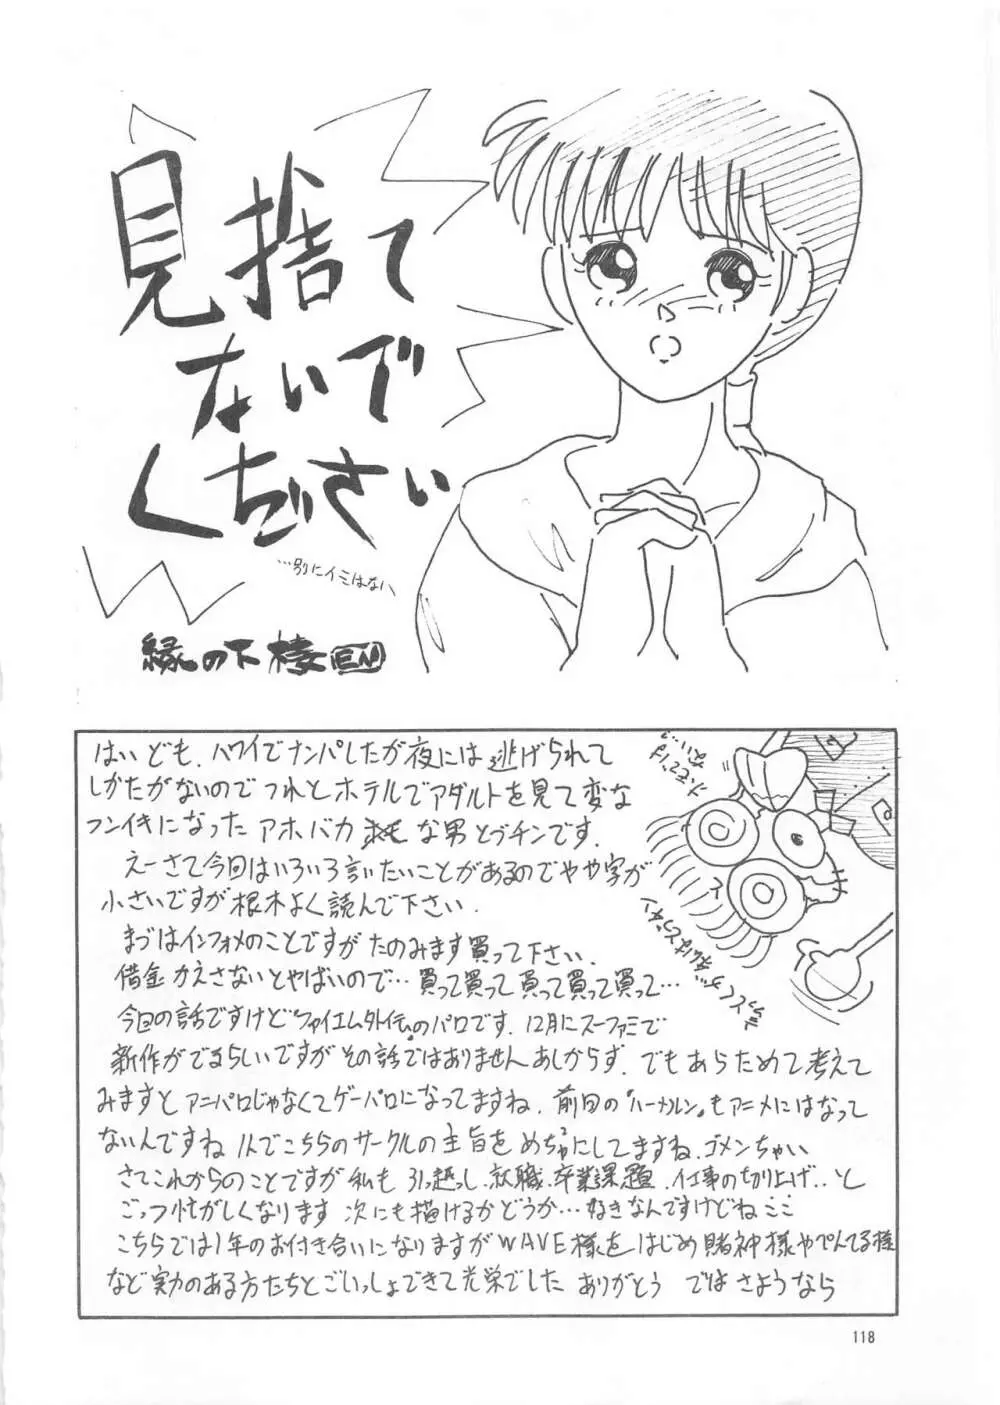 見捨て
ないで
ください
…別にイミはない
縁の下 棲 EN
はい ども、ハワイでナンパしたが夜には逃げられて
しかたがないのでつれとホテルでアダルトを見て変な
フンイキになったアホバカ な男 とブチンです.
えーさて今回はいろいろ言いたいことがあるのでやや字が
小さいですが根木よく読んで下さい.
まづはインフォメのことですがたのみます買って下さい.
借金かえさないとやばいので…買って買って買って買って買って…
今回の話ですけど『ファイエム外伝』のパロです.12月にスーファミで
新作がでるらしいですがその話ではありませんあしからず.でもあらためて考えて
みますとアニパロじゃなくてゲーパロになってますね.前回の『ハーメルン』もアニメにはなって
ないんですね 1人でこちらのサークルの主旨をめちゃにしてますね.ゴメンちゃい
さてこれからのことですが私も引っ越し.就職.卒業課題.仕事の切り上げ..と
ごっつ忙がしくなります 次にも描けるかどうか…好きなんですけどねここ
こちらでは1年のお付き合いになりますがWAVE様をはじめ賭神様やぺんてる様
など実力のある方たちとごいっしょできて光栄でした ありがとう ではさようなら
118